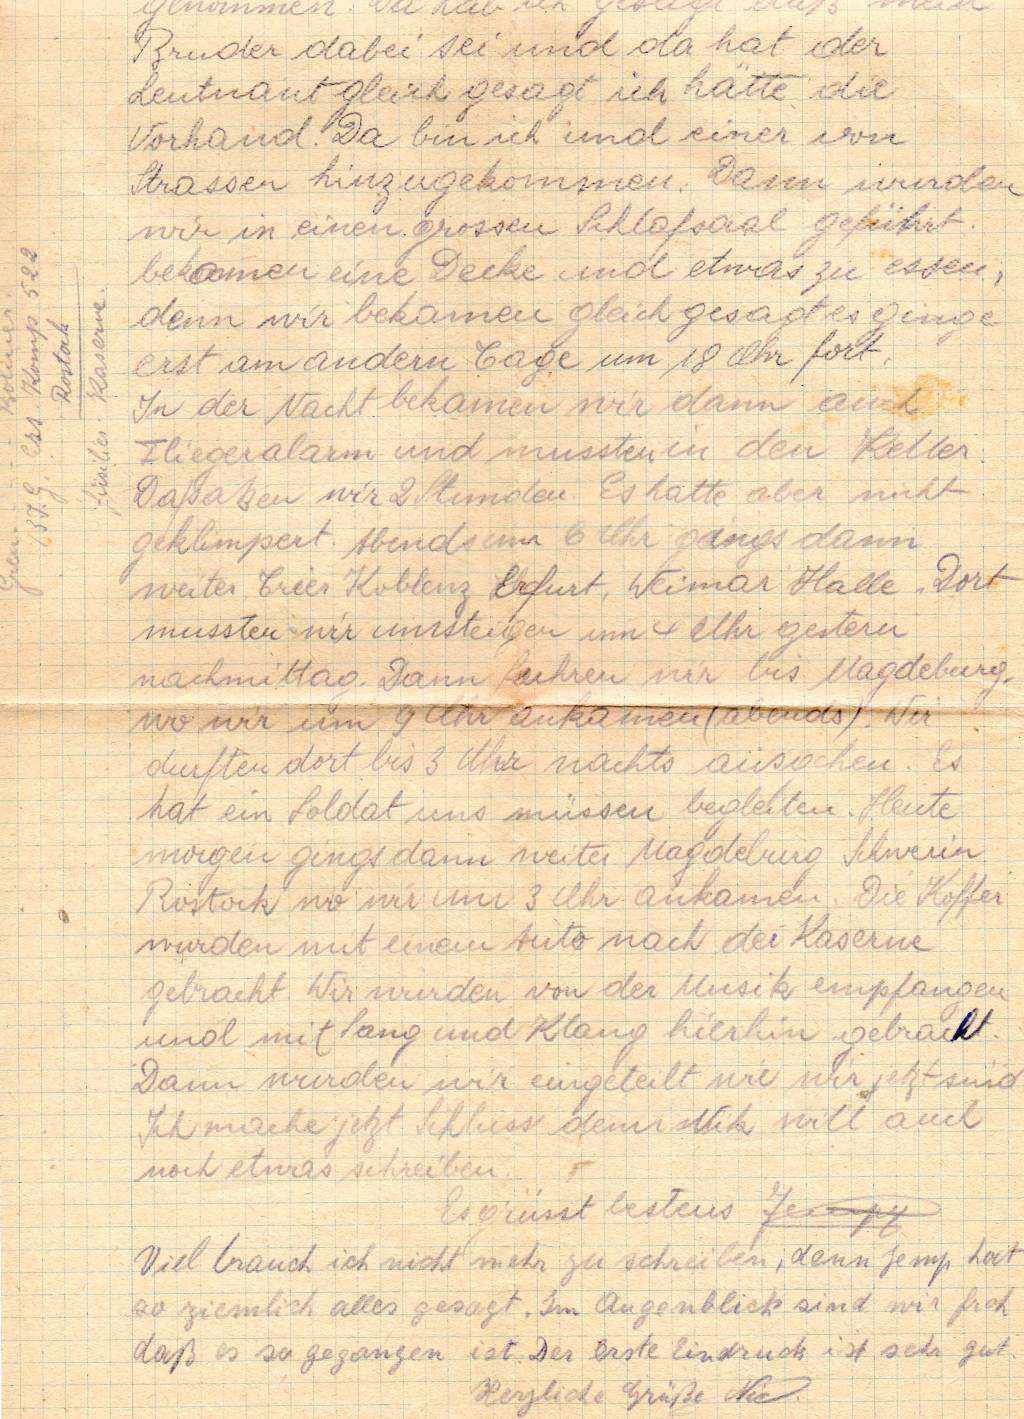 genommen. Da hab ich gesagt daß mein
Bruder dabei sei und da hat der
Leutnant gleich gesagt ich hätte die
Vorhand. Da bin ich und einer von
Strassen hinzugekommen. Dann wurden
wir in einen grossen Schlafsaal geführt.
bekamen eine Decke und etwas zu essen,
denn wir bekamen gleich gesagt es ginge
erst am andern Tage um 18 Uhr fort.
In der Nacht bekamen wir dann auch
Fliegeralarm und mussten in den Keller.
Da saßen wir 2 Stunden. Es hatte aber nicht
geklimpert. Abends um 6 Uhr gings dann
weiter Trier Koblenz Erfurt, Weimar Halle. Dort
mussten wir umsteigen um 4 Uhr gestern
nachmittag. Dann fuhren wir bis Magdeburg,
wo wir um 9 Uhr ankamen (abends). Wir
durften dort bis 3 Uhr nachts ausgehen. Es
hat ein Soldat uns müssen begleiten. Heute
morgen gings dann weiter Magdeburg Schwerin
Rostock wo wir um 3 Uhr ankamen. Die Koffer
wurden mit einem Auto nach der Kaserne
gebracht. Wir wurden von der Musik empfangen
und mit Sang und Klang hierhin gebracht.
Dann wurden wir eingeteilt wie wir jetzt sind
Ich mache jetzt Schluss denn Nik will auch
noch etwas schreiben.
Es grüsst bestens Jempy
Viel brauch ich nicht mehr zu schreiben, denn Jemp hat
so ziemlich alles gesagt. Im Augenblick sind wir froh
daß es so gegangen ist. Der Erste Eindruck ist sehr gut.
Herzliche Grüße Nic
Gren.
Komp 522
Rostock
Füsilier Kaserne.